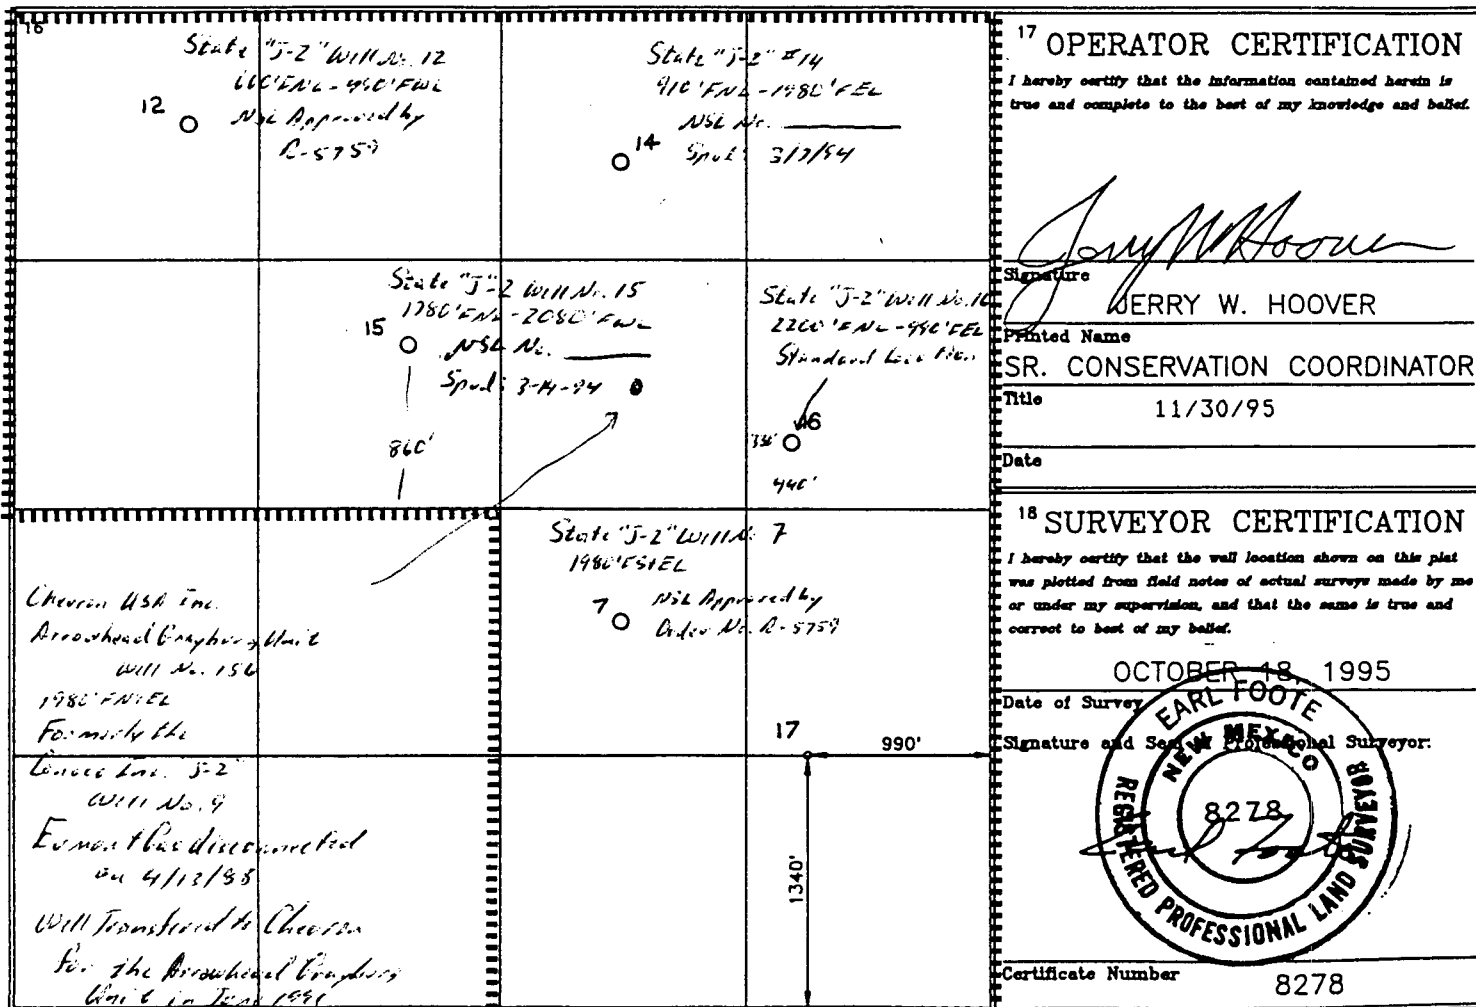 16
State "J-2" Well No. 12
660'FNL-990'FWL
NSL Approved by
R-5759
12
State "J-2" #14
910'FNL-1980'FEL
NSL No.
Spud: 3/7/94
14
State "J-2 Well No. 15
1780'FNL-2080'FWL
NSL No.
Spud: 3-14-94
15
860'
State "J-2" Well No. 16
2200'FNL-990'FEL
Standard Location
16
330'
440'
State "J-2" Well No. 7
1980'FS&EL
NSL Approved by
Order No. R-5759
7
Chevron USA Inc.
Arrowhead Grayburg Unit
Well No. 156
1980'FN&EL
Formerly the
Conoco Inc. J-2
Well No. 9
Eumont Gas disconnected
on 4/13/88
Well Transferred to Chevron
for the Arrowhead Grayburg
Unit in June 1991
17
990'
1340'
17 OPERATOR CERTIFICATION
I hereby certify that the information contained herein is
true and complete to the best of my knowledge and belief.
Jerry W Hoover
Signature
JERRY W. HOOVER
Printed Name
SR. CONSERVATION COORDINATOR
Title
11/30/95
Date
18 SURVEYOR CERTIFICATION
I hereby certify that the well location shown on this plat
was plotted from field notes of actual surveys made by me
or under my supervision, and that the same is true and
correct to best of my belief.
OCTOBER 18, 1995
Date of Survey
Signature and Seal of Professional Surveyor:
EARL FOOTE
NEW MEXICO
8278
REGISTERED PROFESSIONAL LAND SURVEYOR
Earl Foote
Certificate Number
8278